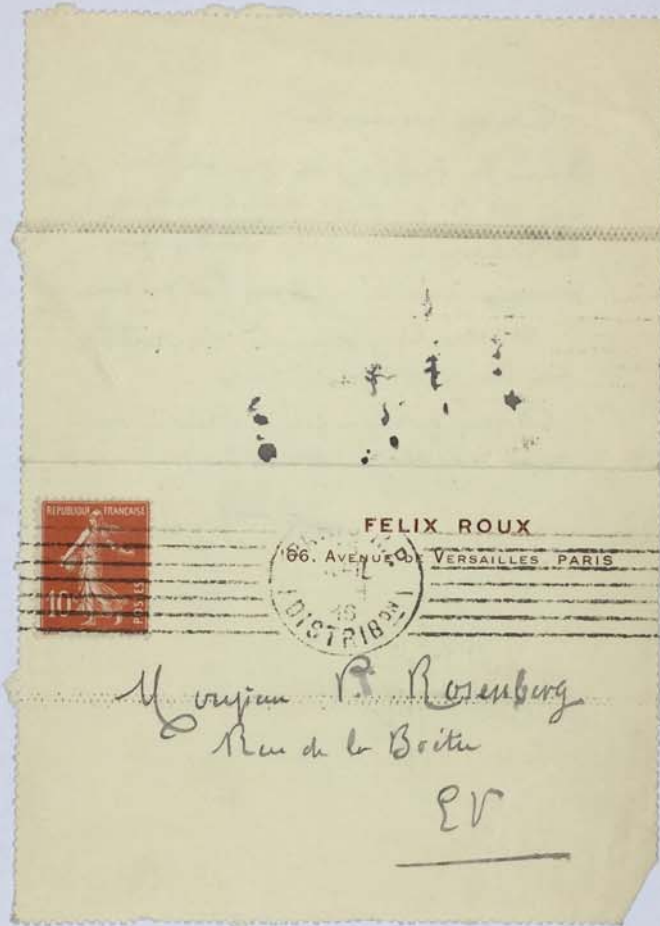 REPUBLIQUE FRANÇAISE
10c
POSTES
FELIX ROUX
66. AVENUE DE VERSAILLES PARIS
PARIS
DISTRIBON
16
Monsieur P. Rosenberg
Rue de la Boétie
EV